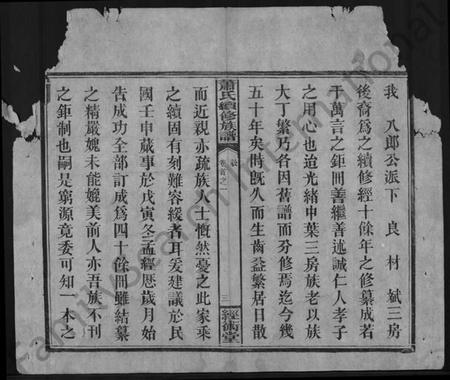 我 八郎公派下 良 材 斌三房
後裔爲之續修經十餘年之修纂成若
干萬言之鉅冊善繼善述誠仁人孝子
之用心也迨光緒申葉三房族老以族
大丁繁乃各因舊譜而分修焉迄今幾
五十年矣時既久而生齒益繁居日散
蕭氏續修族譜
卷首之一
三
經術堂
而近親亦疏族人士慨然憂之此家乘
之續固有刻難容緩者耳爰建議於民
國壬申蕆事於戊寅冬孟經歷歲月始
告成功全部訂成爲四十餘冊雖結纂
之精嚴媿未能媲美前人亦吾族不刊
之鉅制也嗣是窮源竟委可知一本之
FamilySearch International